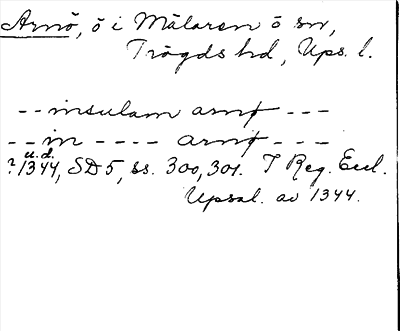 Arnö, ö i Mälaren ö sn,
Trögds hd, Ups. l.
-- insulam arnø ---
-- in ---- arnø ---
u.d.
? 1344, SD 5, ss. 300, 301. I Reg. Eccl.
Upsal. av 1344.